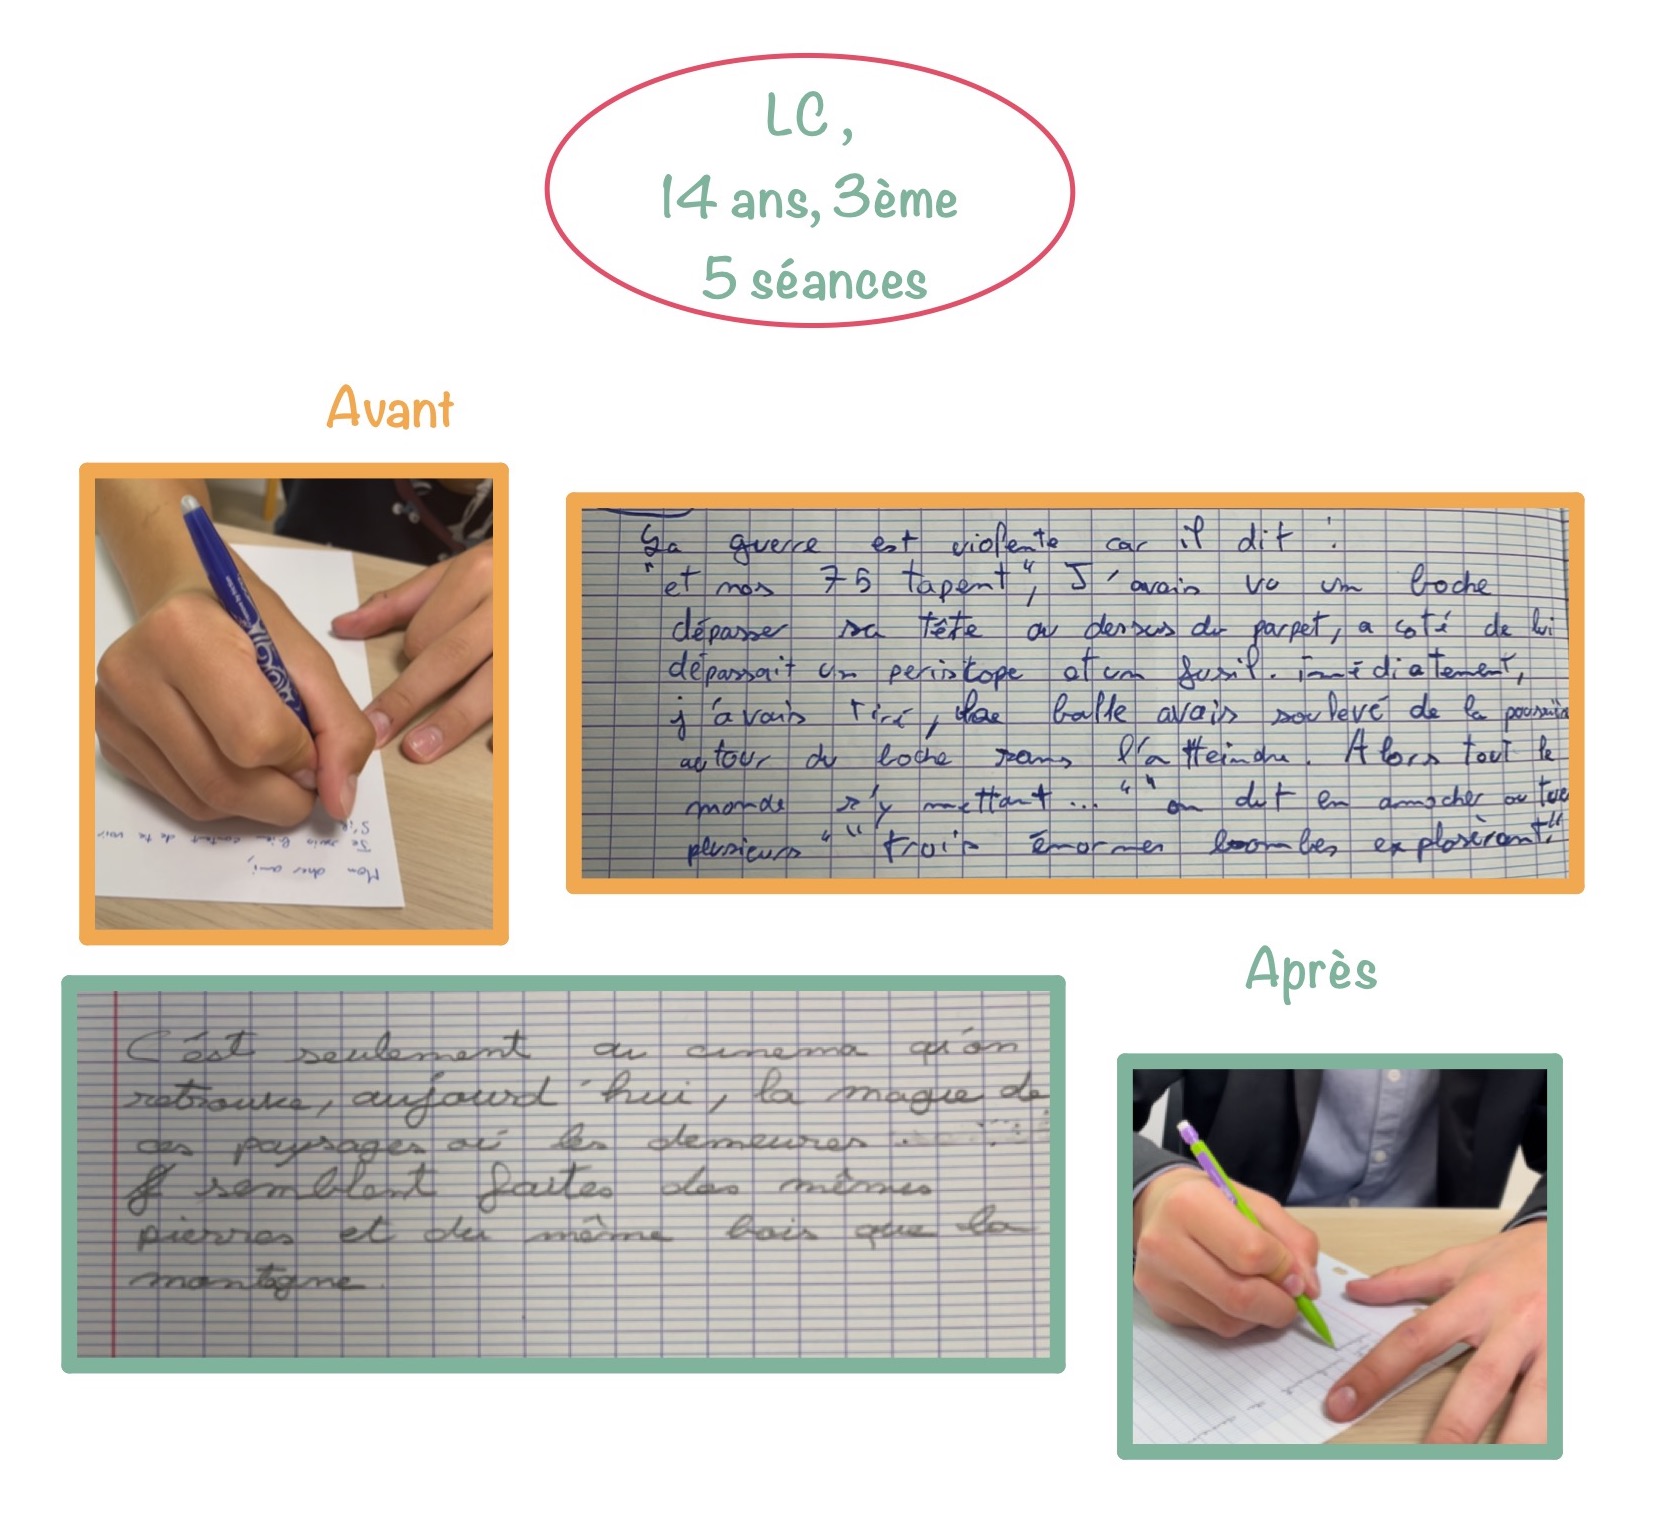 LC,
14 ans, 3ème
5 séances
Avant
Mon cher ami,
Je suis bien content de te voir
La guerre est violente car il dit :
"et nos 75 tapent", J'avais vu un boche
dépasser sa tête au dessus du parpet, a coté de lui
dépassait un periscope et un fusil. immédiatement,
j'avais tiré, la balle avais soulevé de la
autour du boche sans l'atteindre. Alors tout le
monde s'y mettant... " " on dut en amocher ou tuer
plusieurs " " trois énormes bombes explosèrent."
Après
C'est seulement au cinema qu'on
retrouve, aujourd'hui, la magie de
ces paysages où les demeures
semblent faites des mêmes
pierres et du même bois que la
montagne.